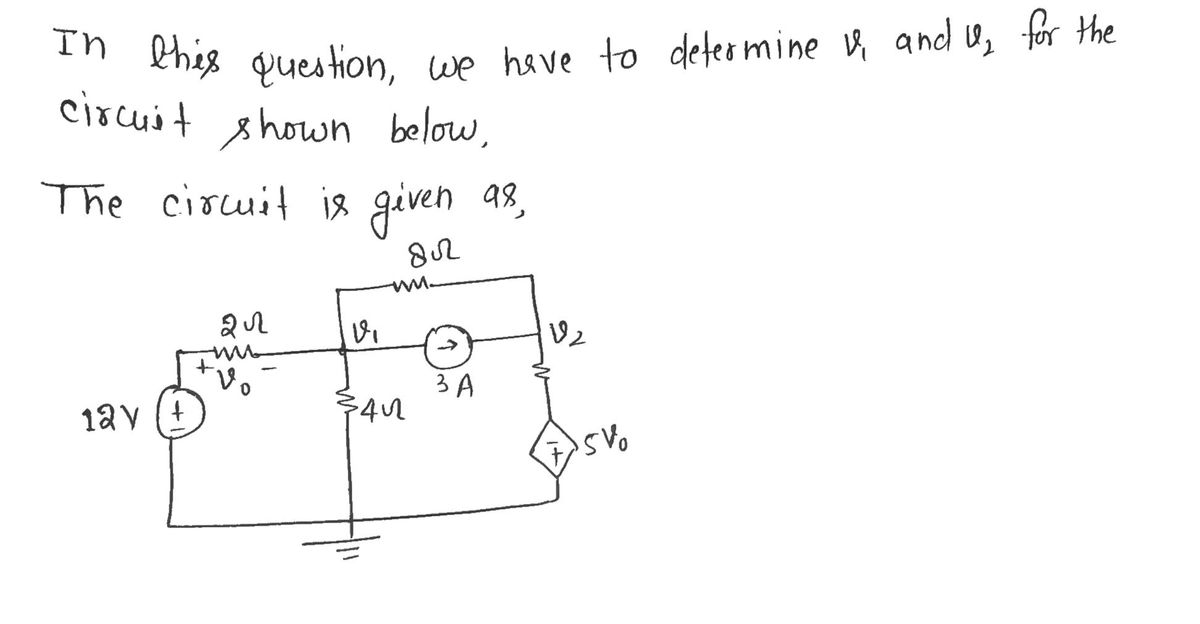 In this question, we have to determine v₁ and v₂ for the
circuit shown below,
The circuit is given as,
8Ω
2Ω
v₁
v₂
+ V₀ -
3 A
12V
+
-
4Ω
-
+
5V₀